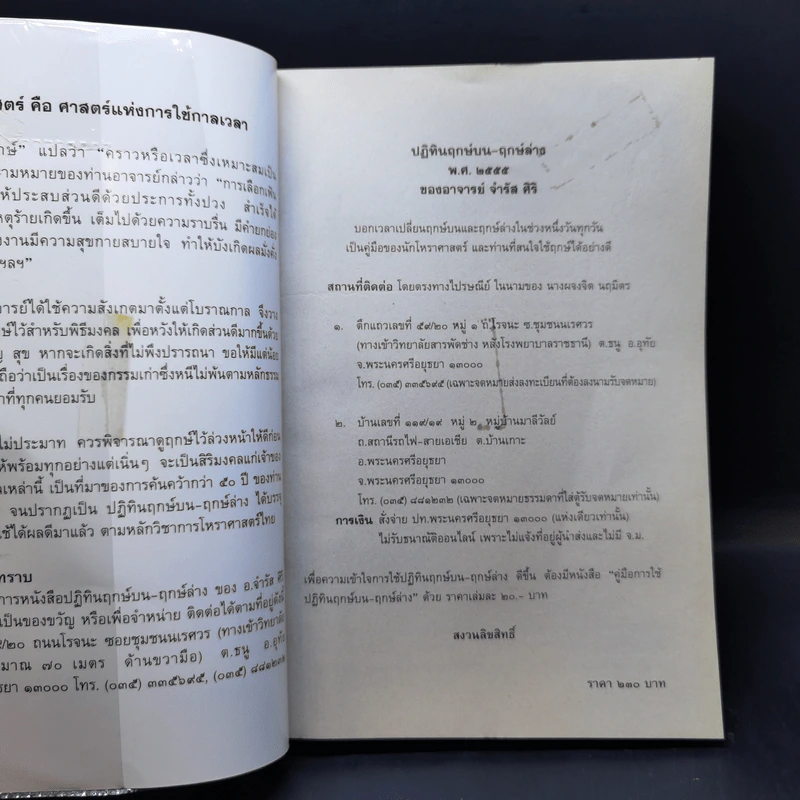 ตร์ คือ ศาสตร์แห่งการใช้กาลเวลา
กษ์” แปลว่า “คราวหรือเวลาซึ่งเหมาะสมเป็น
ามหมายของท่านอาจารย์กล่าวว่า “การเลือกเฟ้น
ห้ประสบส่วนดีด้วยประการทั้งปวง สำเร็จได้
หตุร้ายเกิดขึ้น เต็มไปด้วยความราบรื่น มีคำยกย่อง
งงานมีความสุขกายสบายใจ ทำให้บังเกิดผลมั่งคั่ง
ฯลฯ”
ารย์ได้ใช้ความสังเกตมาตั้งแต่โบราณกาล จึงวาง
ษ์ไว้สำหรับพิธีมงคล เพื่อหวังให้เกิดส่วนดีมากขึ้นด้วย
ญ สุข หากจะเกิดสิ่งที่ไม่พึงปรารถนา ขอให้มีแต่น้อย
ถือว่าเป็นเรื่องของกรรมเก่าซึ่งหนีไม่พ้นตามหลักธรรม
าที่ทุกคนยอมรับ
ไม่ประมาท ควรพิจารณาดูฤกษ์ไว้ล่วงหน้าให้ดีก่อน
ให้พร้อมทุกอย่างแต่เนิ่นๆ จะเป็นสิริมงคลแก่เจ้าของ
ลเหล่านี้ เป็นที่มาของการค้นคว้ากว่า ๕๐ ปี ของท่าน
จนปรากฏเป็น ปฏิทินฤกษ์บน-ฤกษ์ล่าง ได้บรรจุ
ใช้ได้ผลดีมาแล้ว ตามหลักวิชาการโหราศาสตร์ไทย
ทราบ
การหนังสือปฏิทินฤกษ์บน-ฤกษ์ล่าง ของ อ.จำรัส ศิริ
เป็นของขวัญ หรือเพื่อจำหน่าย ติดต่อได้ตามที่อยู่ดังนี้
๙/๒๐ ถนนโรจนะ ซอยชุมชนนเรศวร (ทางเข้าวิทยาลัย
มาณ ๗๐ เมตร ด้านขวามือ) ต.ธนู อ.อุทัย
ธยา ๑๓๐๐๐ โทร. (๐๓๕) ๓๓๕๖๙๕, (๐๓๕) ๘๘๑๒๓๒
ปฏิทินฤกษ์บน-ฤกษ์ล่าง
พ.ศ. ๒๕๕๕
ของอาจารย์ จำรัส ศิริ
บอกเวลาเปลี่ยนฤกษ์บนและฤกษ์ล่างในช่วงหนึ่งวันทุกวัน
เป็นคู่มือของนักโหราศาสตร์ และท่านที่สนใจใช้ฤกษ์ได้อย่างดี
สถานที่ติดต่อ โดยตรงทางไปรษณีย์ ในนามของ นางผจงจิต นฤมิตร
๑. ตึกแถวเลขที่ ๕๙/๒๐ หมู่ ๑ ถ.โรจนะ ซ.ชุมชนนเรศวร
(ทางเข้าวิทยาลัยสารพัดช่าง หลังโรงพยาบาลราชธานี) ต.ธนู อ.อุทัย
จ.พระนครศรีอยุธยา ๑๓๐๐๐
โทร. (๐๓๕) ๓๓๕๖๙๕ (เฉพาะจดหมายส่งลงทะเบียนที่ต้องลงนามรับจดหมาย)
๒. บ้านเลขที่ ๑๑๙/๑๙ หมู่ ๒ หมู่บ้านมาลีวัลย์
ถ.สถานีรถไฟ-สายเอเชีย ต.บ้านเกาะ
อ.พระนครศรีอยุธยา
จ.พระนครศรีอยุธยา ๑๓๐๐๐
โทร. (๐๓๕) ๘๘๑๒๓๒ (เฉพาะจดหมายธรรมดาที่ใส่ตู้รับจดหมายเท่านั้น)
การเงิน สั่งจ่าย ปท.พระนครศรีอยุธยา ๑๓๐๐๐ (แห่งเดียวเท่านั้น)
ไม่รับธนาณัติออนไลน์ เพราะไม่แจ้งที่อยู่ผู้นำส่งและไม่มี จ.ม.
เพื่อความเข้าใจการใช้ปฏิทินฤกษ์บน-ฤกษ์ล่าง ดีขึ้น ต้องมีหนังสือ “คู่มือการใช้
ปฏิทินฤกษ์บน-ฤกษ์ล่าง” ด้วย ราคาเล่มละ ๒๐.- บาท
สงวนลิขสิทธิ์
ราคา ๒๓๐ บาท